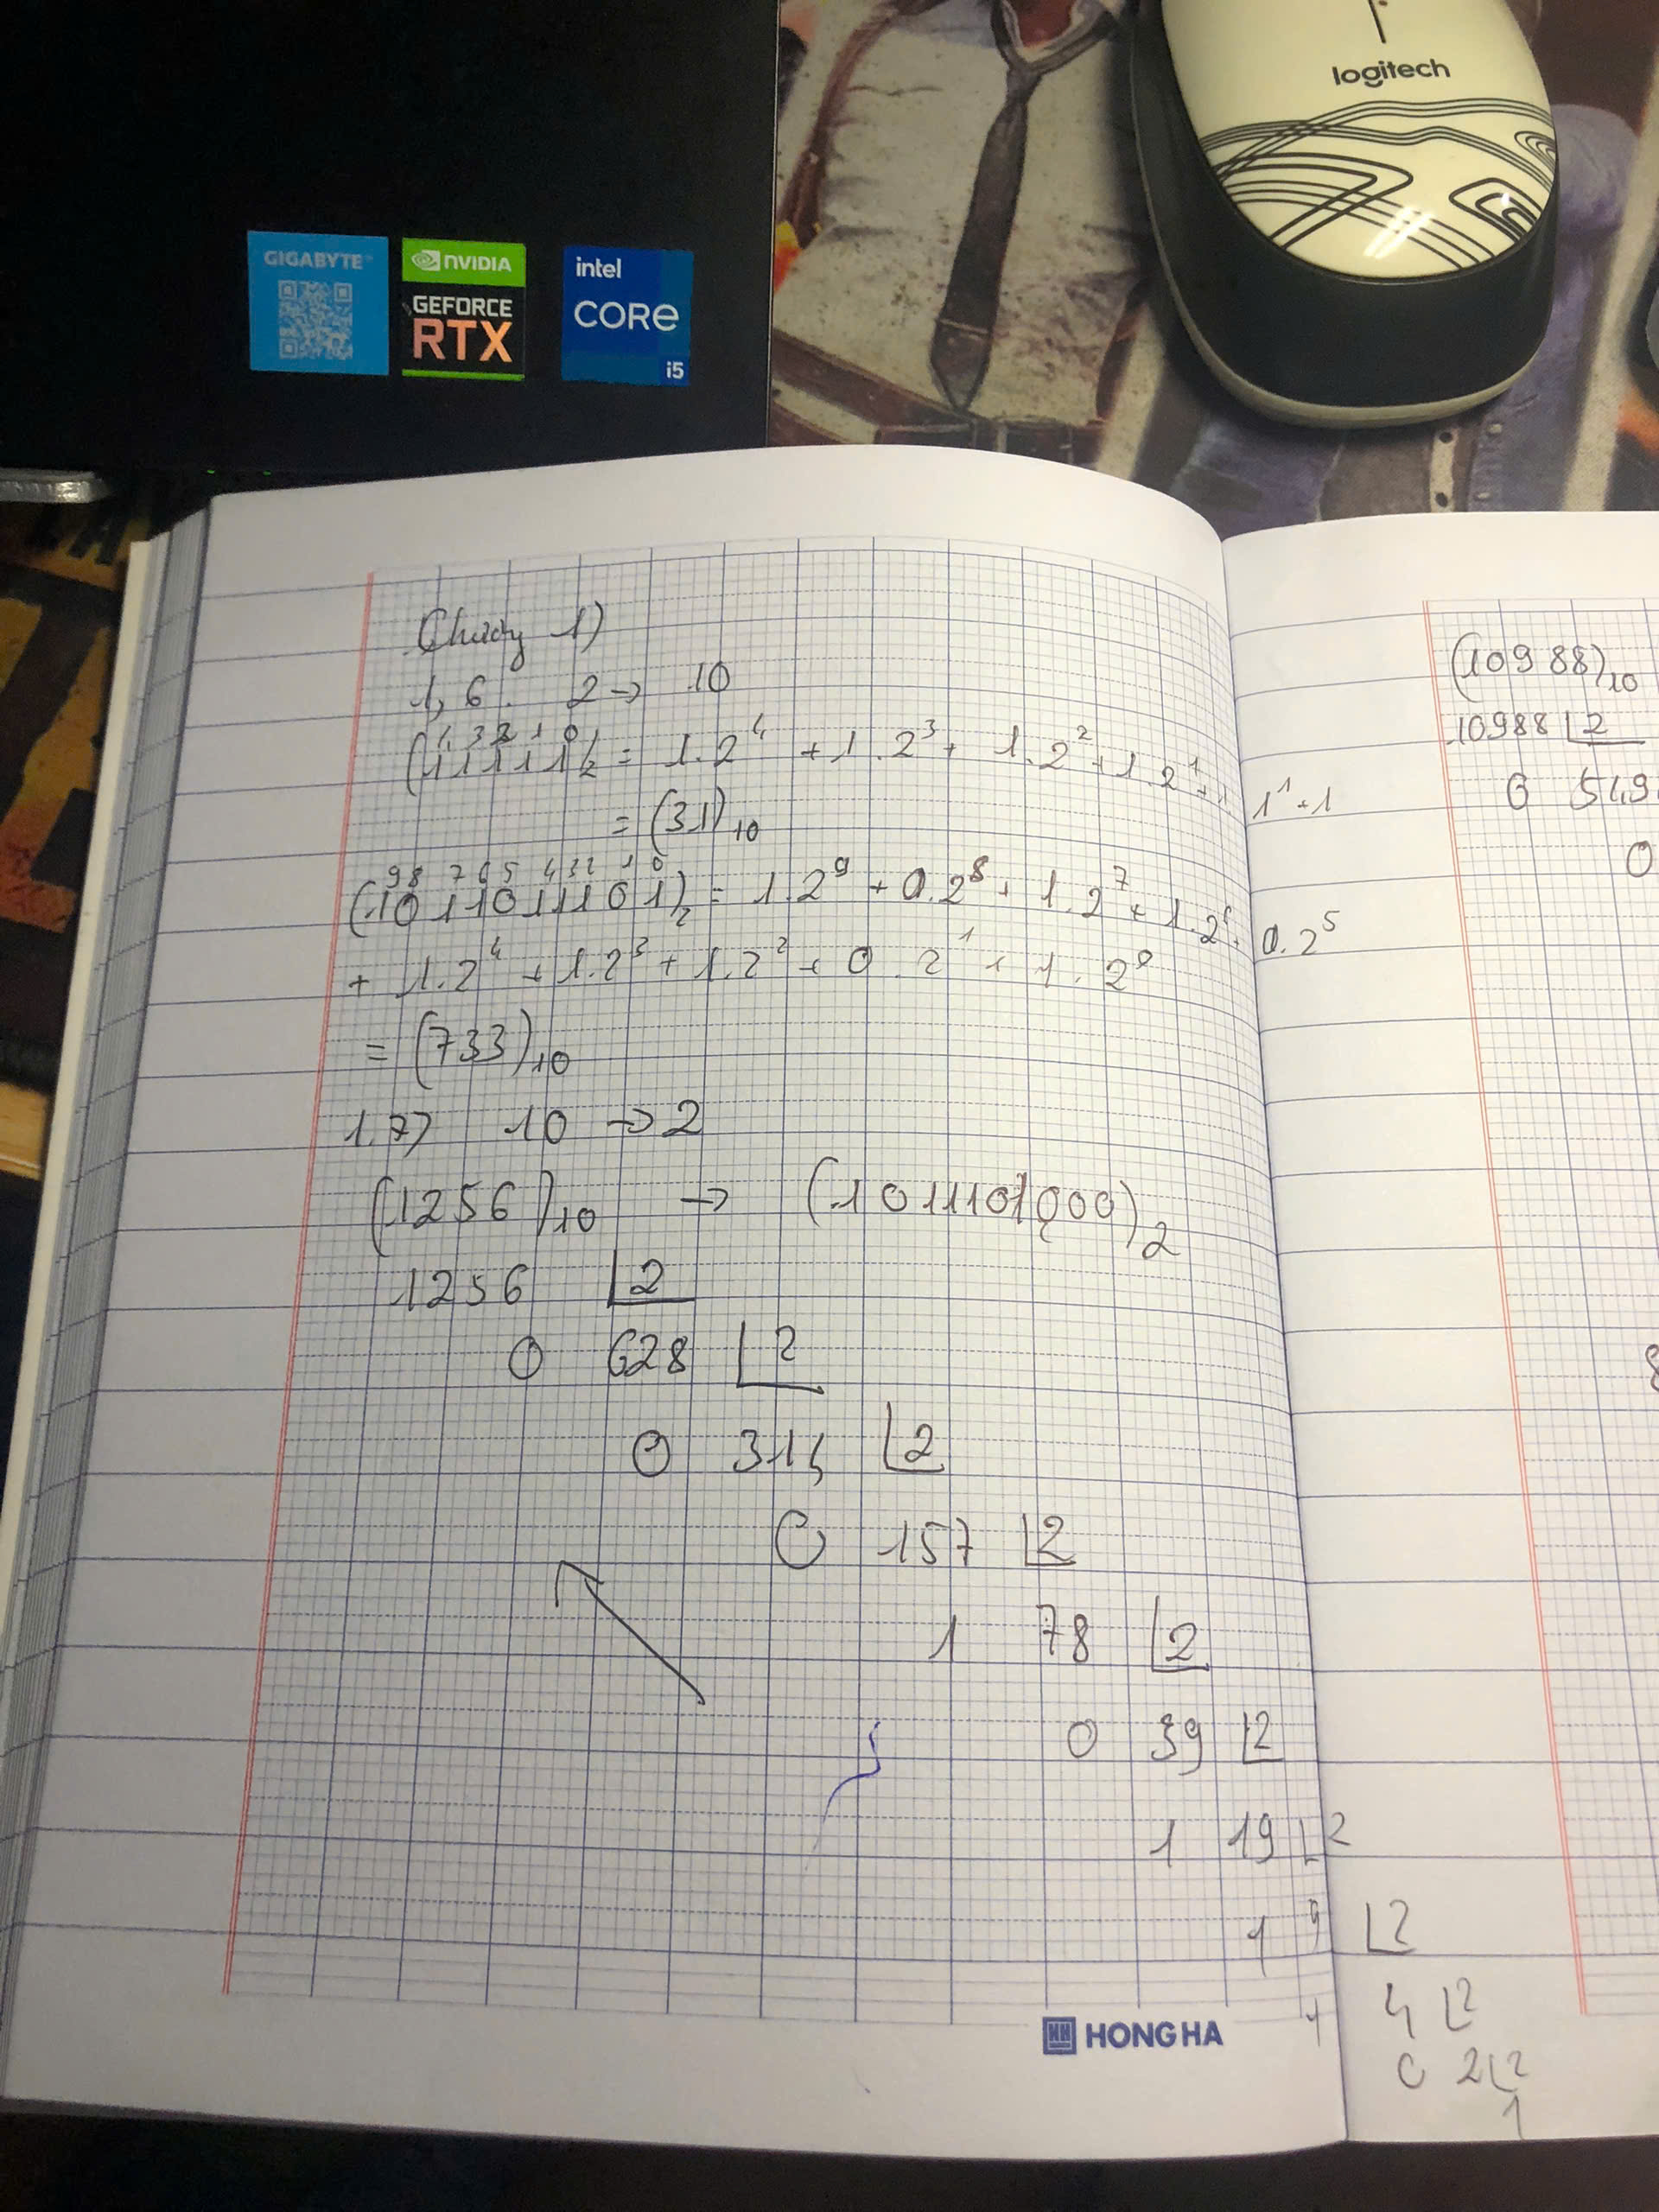 logitech
GIGABYTE
NVIDIA
GEFORCE
RTX
intel
CORE
i5
1)
1, 6. 2 → 10
4 3 2 1 0
(11111)₂ = 1.2⁴ + 1.2³ + 1.2² + 1.2¹ + 1
1¹ + 1
= (31)₁₀
9 8 7 6 5 4 3 2 1 0
(1011011101)₂ = 1.2⁹ + 0.2⁸ + 1.2⁷ + 1.2⁶ + 0.2⁵
+ 1.2⁴ + 1.2³ + 1.2² + 0.2¹ + 1.2⁰
= (733)₁₀
1.7) 10 → 2
(1256)₁₀ → (1011101000)₂
1256 2
0 628 2
0 314 2
0 157 2
1 78 2
0 39 2
1 19 2
1 9 2
1 4 2
0 2 2
1
HONG HA
(10988)₁₀
10988 2
0 549
0
8